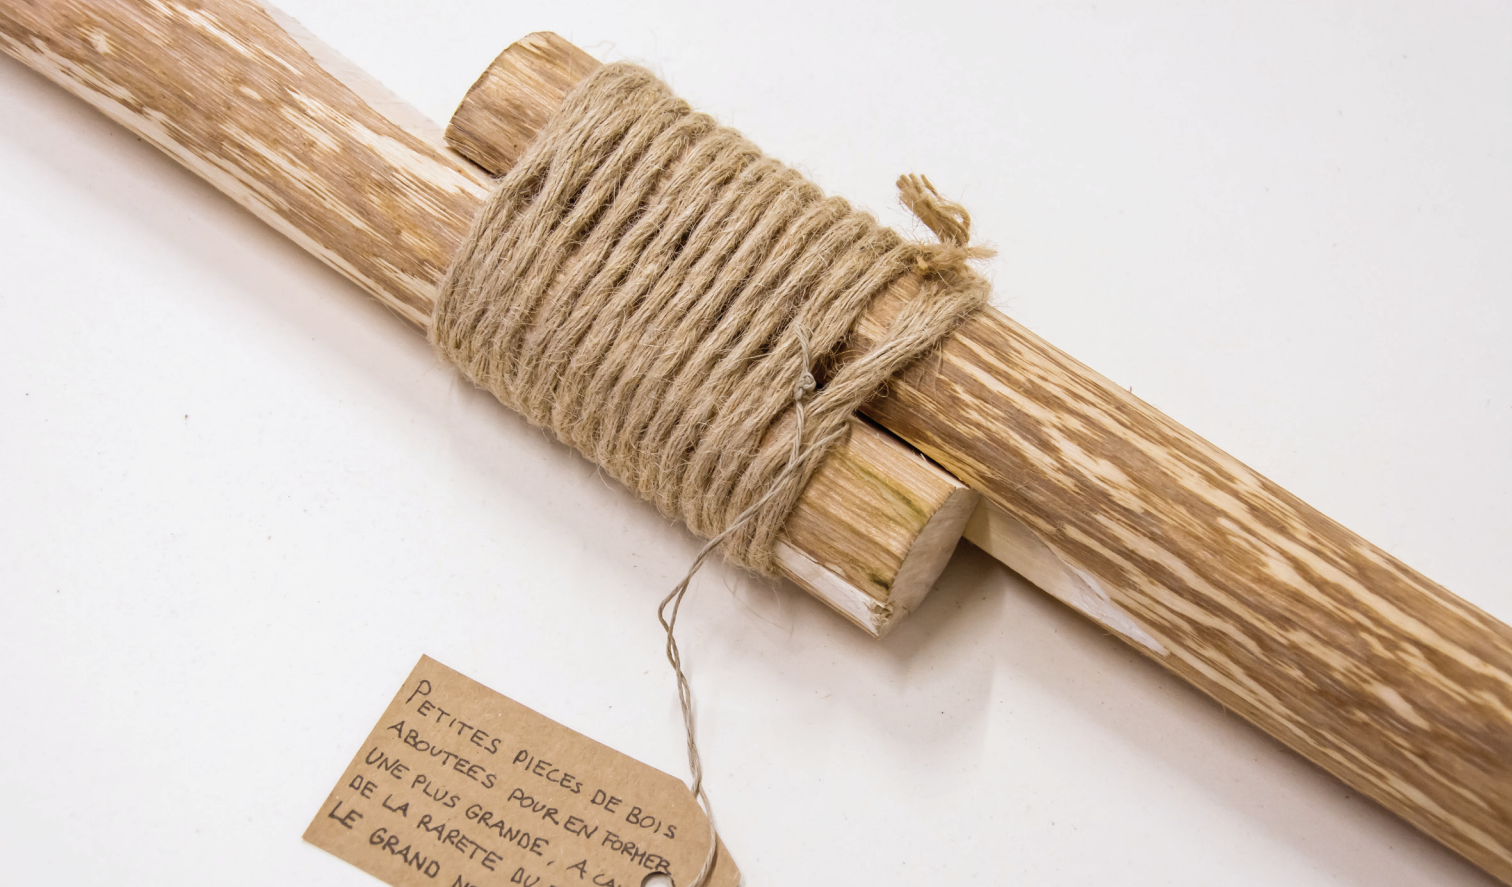 PETITES PIECES DE BOIS
ABOUTEES POUR EN FORMER
UNE PLUS GRANDE, A
DE LA RARETE DU
LE GRAND